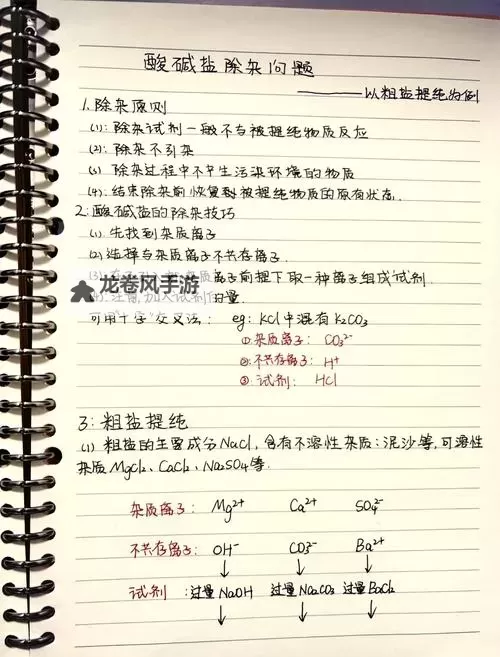 酸碱盐除杂问题
——以粗盐提纯为例
1.除杂原则
(1):除杂试剂一般不与被提纯物质反应
(2):除杂不引杂
(3) 除杂过程中不产生污染环境的物质
(4):结束除杂前恢复到被提纯物质的原有状态.
2:酸碱盐的除杂技巧
(1).先找到杂质离子
(2)选择与杂质离子不共存离子.
(3) 离子前提下取一种离子组成试剂.
龙卷风手游
注意加入试剂 量.
可用"十字"交叉法: eg: KCl中混有K₂CO₃
①杂质离子: CO₃²⁻
②不共存离子: H⁺
③试剂: HCl
3:粗盐提纯
(1) 粗盐的主要成分NaCl,含有不溶性杂质:泥沙等,可溶性
杂质MgCl₂、CaCl₂、Na₂SO₄等.
杂质离子: Mg²⁺ Ca²⁺ SO₄²⁻
不共存离子: OH⁻ CO₃²⁻ Ba²⁺
↓ ↓ ↓
试剂:过量NaOH 过量Na₂CO₃ 过量BaCl₂
↓ ↓ ↓